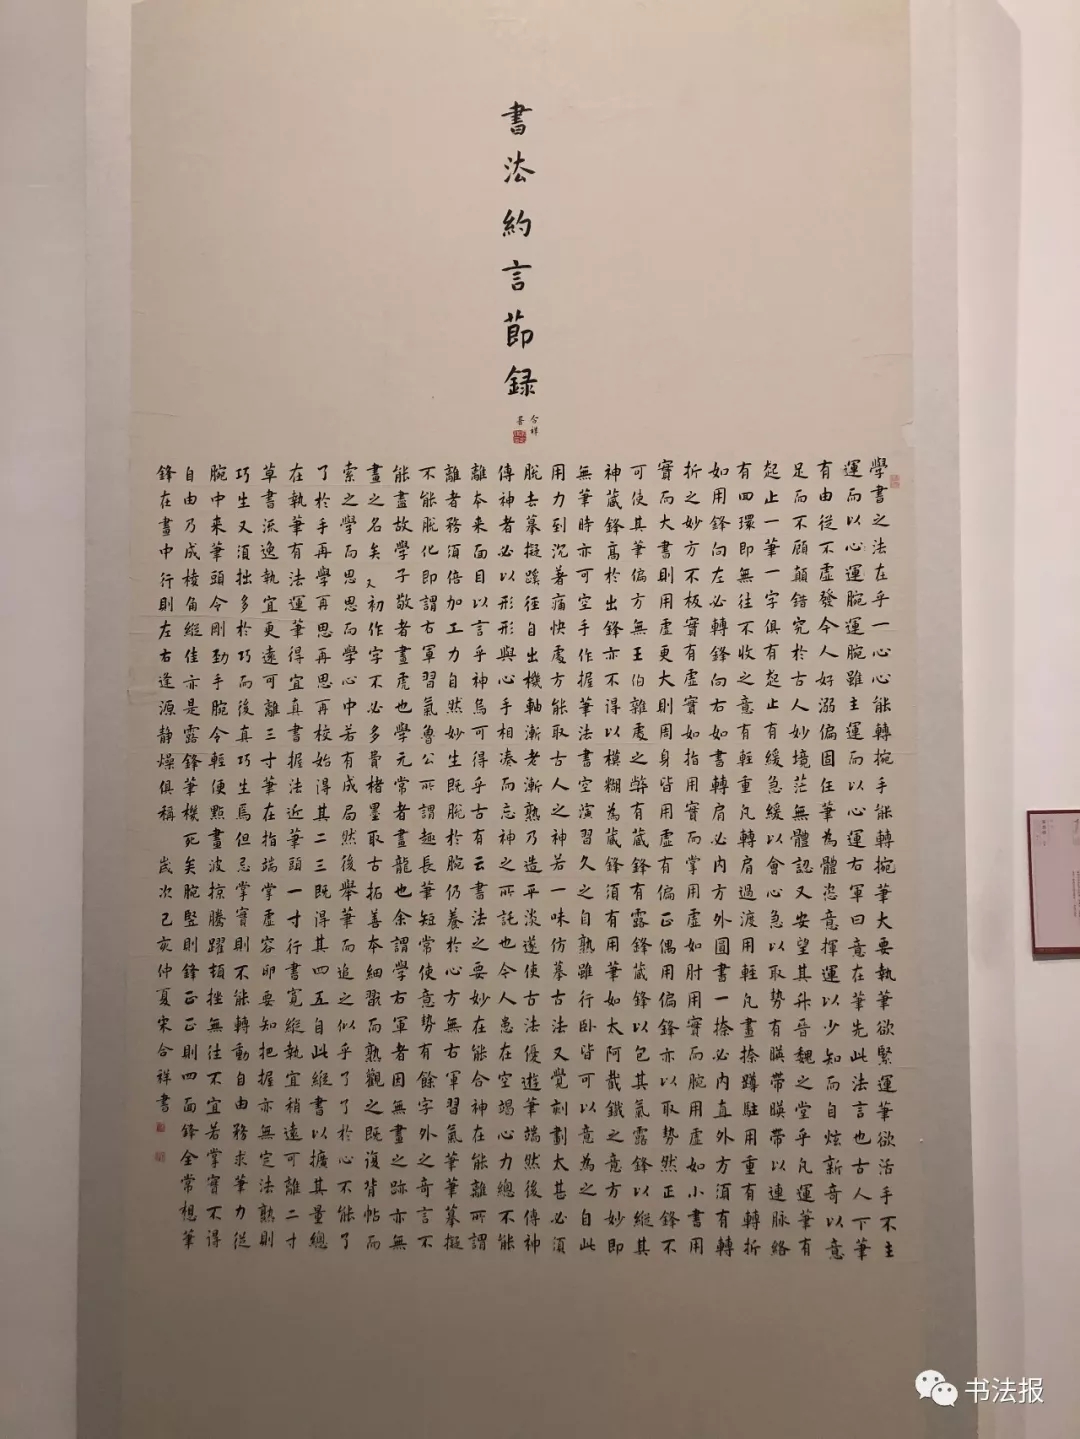 書法約言節録
合祥
書
學書之法在乎一心心能轉捥手能轉捥筆大要執筆欲緊運筆欲活手不主
運而以心運腕運腕雖主運而以心運右軍曰意在筆先此法言也古人下筆
有由從不虛發今人好溺偏固任筆為體恣意揮運以少知而自炫新奇以意
足而不顧顛錯究於古人妙境茫無體認又安望其升晉魏之堂乎凡運筆有
起止一筆一字俱有起止有緩急緩以會心急以取勢有暎帶暎帶以連脈絡
有四環即無往不收之意有輕重凡轉肩過渡用輕凡畫捺蹲駐用重有轉折
如用鋒向左必轉鋒向右如書轉肩必內方外圓書一捺必內直外方須有轉
折之妙方不板實有虛實如指用實而掌用虛如肘用實而腕用虛如小書用
實而大書則用虛更大則周身皆用虛有偏正偶用偏鋒亦以取勢然正鋒不
可使其筆偏方無王伯雜處之弊有藏鋒有露鋒藏鋒以包其氣露鋒以縱其
神藏鋒高於出鋒亦不得以模糊為藏鋒須有用筆如太阿截鐵之意方妙即
無筆時亦可空手作握筆法書空演習久之自熟雖行臥皆可以意為之自此
用力到沉著痛快處方能取古人之神若一味仿摹古法又覺刻劃太甚必須
脫去摹擬蹊徑自出機軸漸老漸熟乃造平淡遂使古法優遊筆端然後傳神
傳神者必以形形與心手相湊而忘神之所託也今人患在空竭心力總不能
離本來面目以言乎神烏可得乎古有云書法之要妙在能合神在能離所謂
離者務須倍加工力自然妙生既脫於腕仍養於心方無右軍習氣筆筆摹擬
不能脫化即謂右軍習氣魯公所謂趣長筆短常使意勢有餘字外之奇言不
能盡故學子敬者畫虎也學元常者畫龍也余謂學右軍者因無畫之跡亦無
畫之名矣又初作字不必多費楮墨取古拓善本細翫而熟觀之既復背帖而
索之學而思思而學心中若有成局然後舉筆而追之似乎了了於心不能了
了於手再學再思再思再校始得其二三既得其四五自此縱書以擴其量總
在執筆有法運筆得宜真書握法近筆頭一寸行書寬縱執宜稍遠可離二寸
草書流逸執宜更遠可離三寸筆在指端掌虛容卵要知把握亦無定法熟則
巧生又須拙多於巧而後真巧生焉但忌掌實則不能轉動自由務求筆力從
腕中來筆頭令剛勁手腕令輕便點畫波掠騰躍頓挫無往不宜若掌實不得
自由乃成棱角縱佳亦是露鋒筆機死矣腕豎則鋒正正則四面鋒全常想筆
鋒在畫中行則左右逢源靜燥俱稱 歲次己亥仲夏宋合祥書
书法报